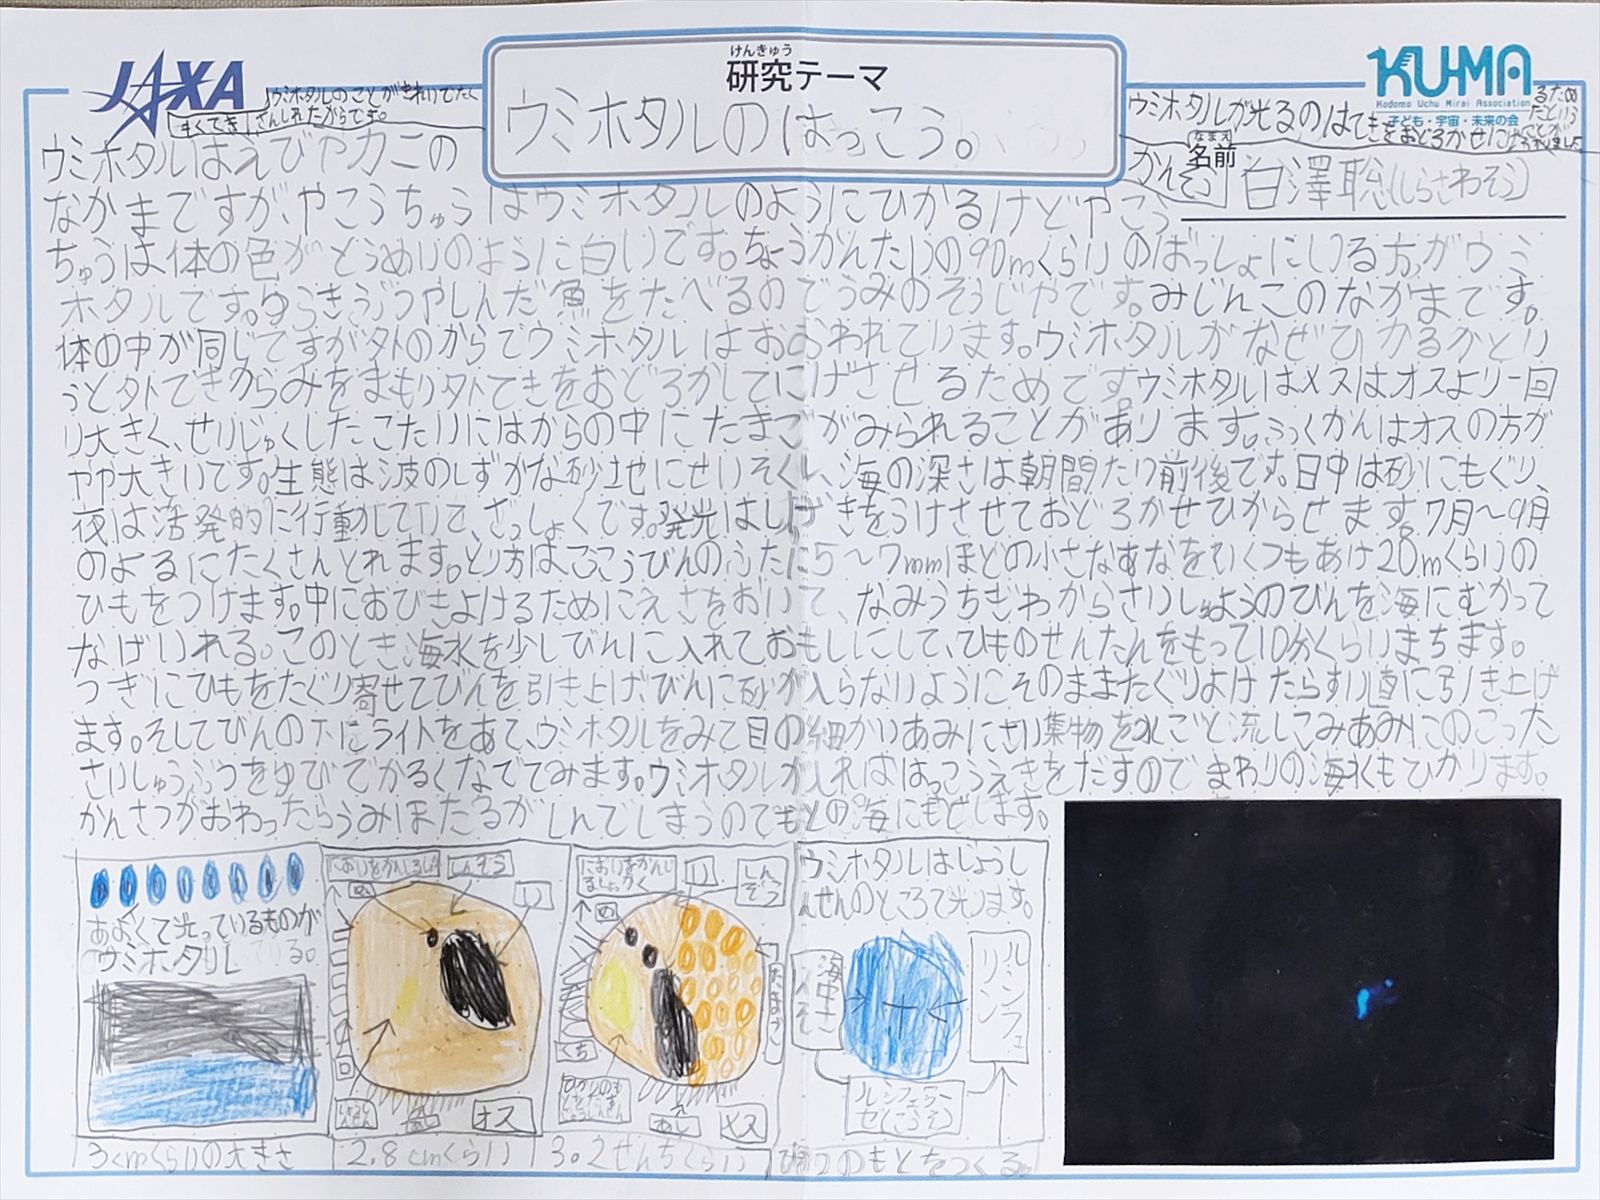 JAXA
けんきゅう
研究テーマ
ウミホタルのはっこう。
KU-MA
Kodomo Uchu Mirai Association
子ども・宇宙・未来の会
ウミホタルのことがきれいでたく
さんしれたからです。
すくてき
ウミホタルが光るのはてきをおどろかせにげ
るため
だという
ことが
かんそう
なまえ
名前
白澤聡(しらさわそう)
ウミホタルはえびやカニの
なかまですが、やこうちゅうはウミホタルのようにひかるけどやこう
ちゅうは体の色がとうめいのように白いです。ちょうかんたいの90mくらいのばっしょにいる方がウミ
ホタルです。ゆうきぶつやしんだ魚をたべるのでうみのそうじやです。みじんこのなかまです。
体の中が同じですが外のからでウミホタルはおおわれています。ウミホタルがなぜひかるかとい
うと外てきからみをまもり外てきをおどろかしてにげさせるためです。ウミホタルはメスはオスより一回
り大きく、せいじゅくしたこたいにはからの中にたまごがみられることがあります。ふっくかんはオスの方が
やや大きいです。生態は波のしずかな砂地にせいそくし、海の深さは朝間たい前後です。日中は砂にもぐり、
夜は活発的に行動していて、ざっしょくです。発光はしげきをうけさせておどろかせひからせます。7月〜9月
のよるにたくさんとれます。とり方はここうびんのふたに5〜7mmほどの小さなあなをいくつもあけ20mくらいの
ひもをつけます。中におびきよけるためにえさをおいて、なみうちぎわからさいしゅようのびんを海にむかって
なげいれる。このとき海水を少しびんに入れておもしにして、ひものせんたんをもって10分くらいまちます。
つぎにひもをたぐり寄せてびんを引き上げ、びんに砂が入らないようにそのままたぐりよけたらすい直に引き上げ
ます。そしてびんの下にライトをあて、ウミホタルをみて目の細かいあみにさい集物を水ごと流しこみあみにのこった
さいしゅうぶつをゆびでかるくなでてみます。ウミオタルが入ればはっこうえきをだすのでまわりの海水もひかります。
かんさつがおわったらうみほたるがしんでしまうのでもとの海にもどします。
あおくて光っているものが
ウミホタル
3cmくらいの大きさ
においをかんじるしょ
しんぞう
め
い
オス
2.8cmくらい
においをかんじ
るしょっかく
い
しん
ぞう
め
たまご
くち
あし
メス
3.2せんちくらい
ウミホタルはじょうし
んせんのところで光ります。
海中
さんそ
ルシフェ
リン
ルシフェラー
ゼ(こうそ)
ひかりのもとをつくる。